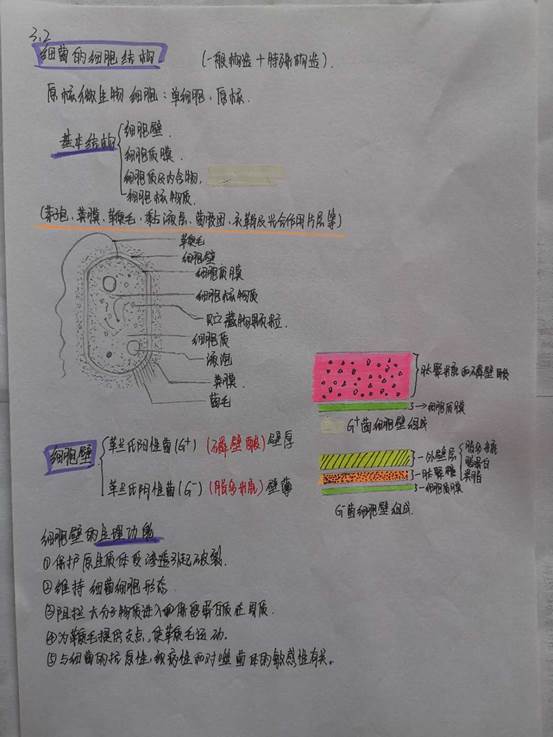 3.2
细菌的细胞结构 (一般构造+特殊构造).
原核微生物细胞:单细胞,原核.
基本结构
细胞壁.
细胞质膜.
细胞质及内含物.
细胞核物质.
(芽孢、荚膜、鞭毛、黏液层、菌胶团、衣鞘及光合作用片层等)
鞭毛
细胞壁
细胞质膜
细胞核物质
贮藏物颗粒.
细胞质
液泡
荚膜
菌毛
肽聚糖和磷壁酸
细胞质膜
G⁺菌细胞壁组成
细胞壁
革兰氏阳性菌(G⁺) (磷壁酸) 壁厚
革兰氏阴性菌(G⁻) (脂多糖) 壁薄
外壁层
脂多糖
脂蛋白
类脂
肽聚糖
细胞质膜
G⁻菌细胞壁组成
细胞壁的生理功能
①保护原生质体受渗透引起破裂.
②维持细菌细胞形态.
③阻拦大分子物质进入 蛋白质在
④为鞭毛提供支点,使鞭毛运动.
⑤与细菌的抗原性,致病性和对噬菌体的敏感性有关。